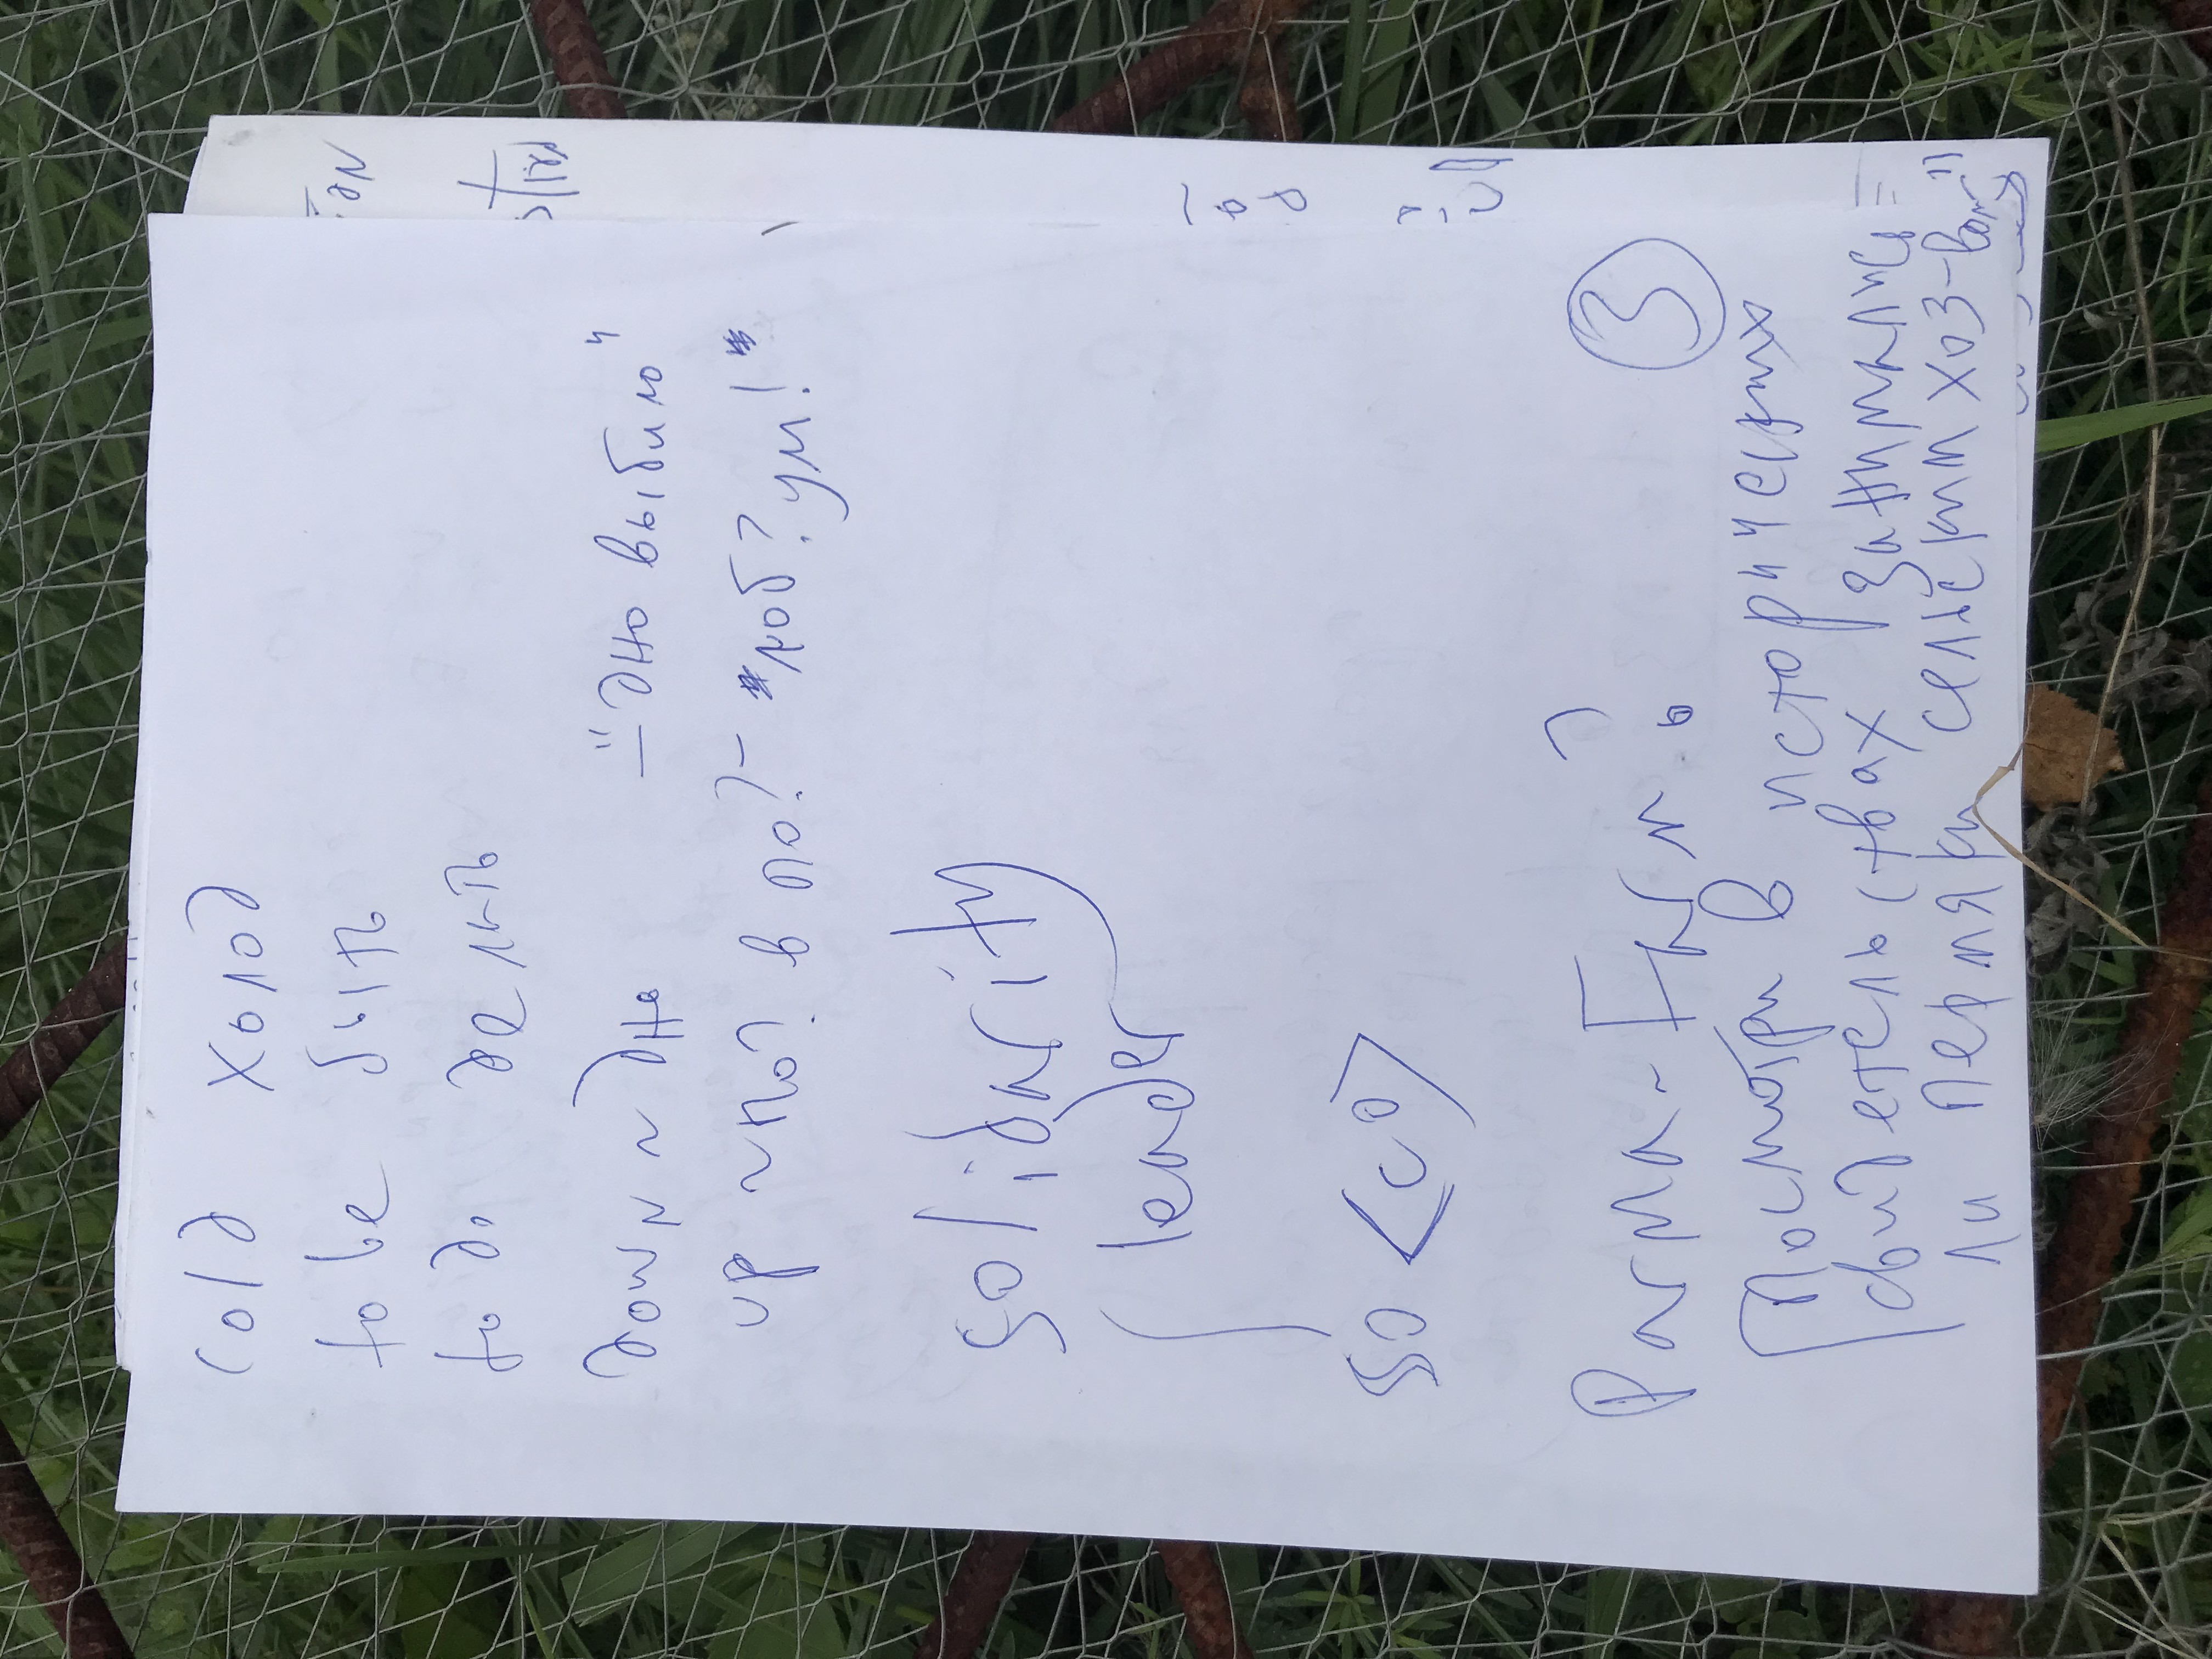 cold холод
to be быть
to do делать
down ~ дно — "дно выбило"
up ~ по? в по? - лоб? ум!
solidarity
leader
so <co>
Parma - Farm?
3
Посмотри в исторических
свидетельствах занимались
ли пермяки сельским хоз-вом